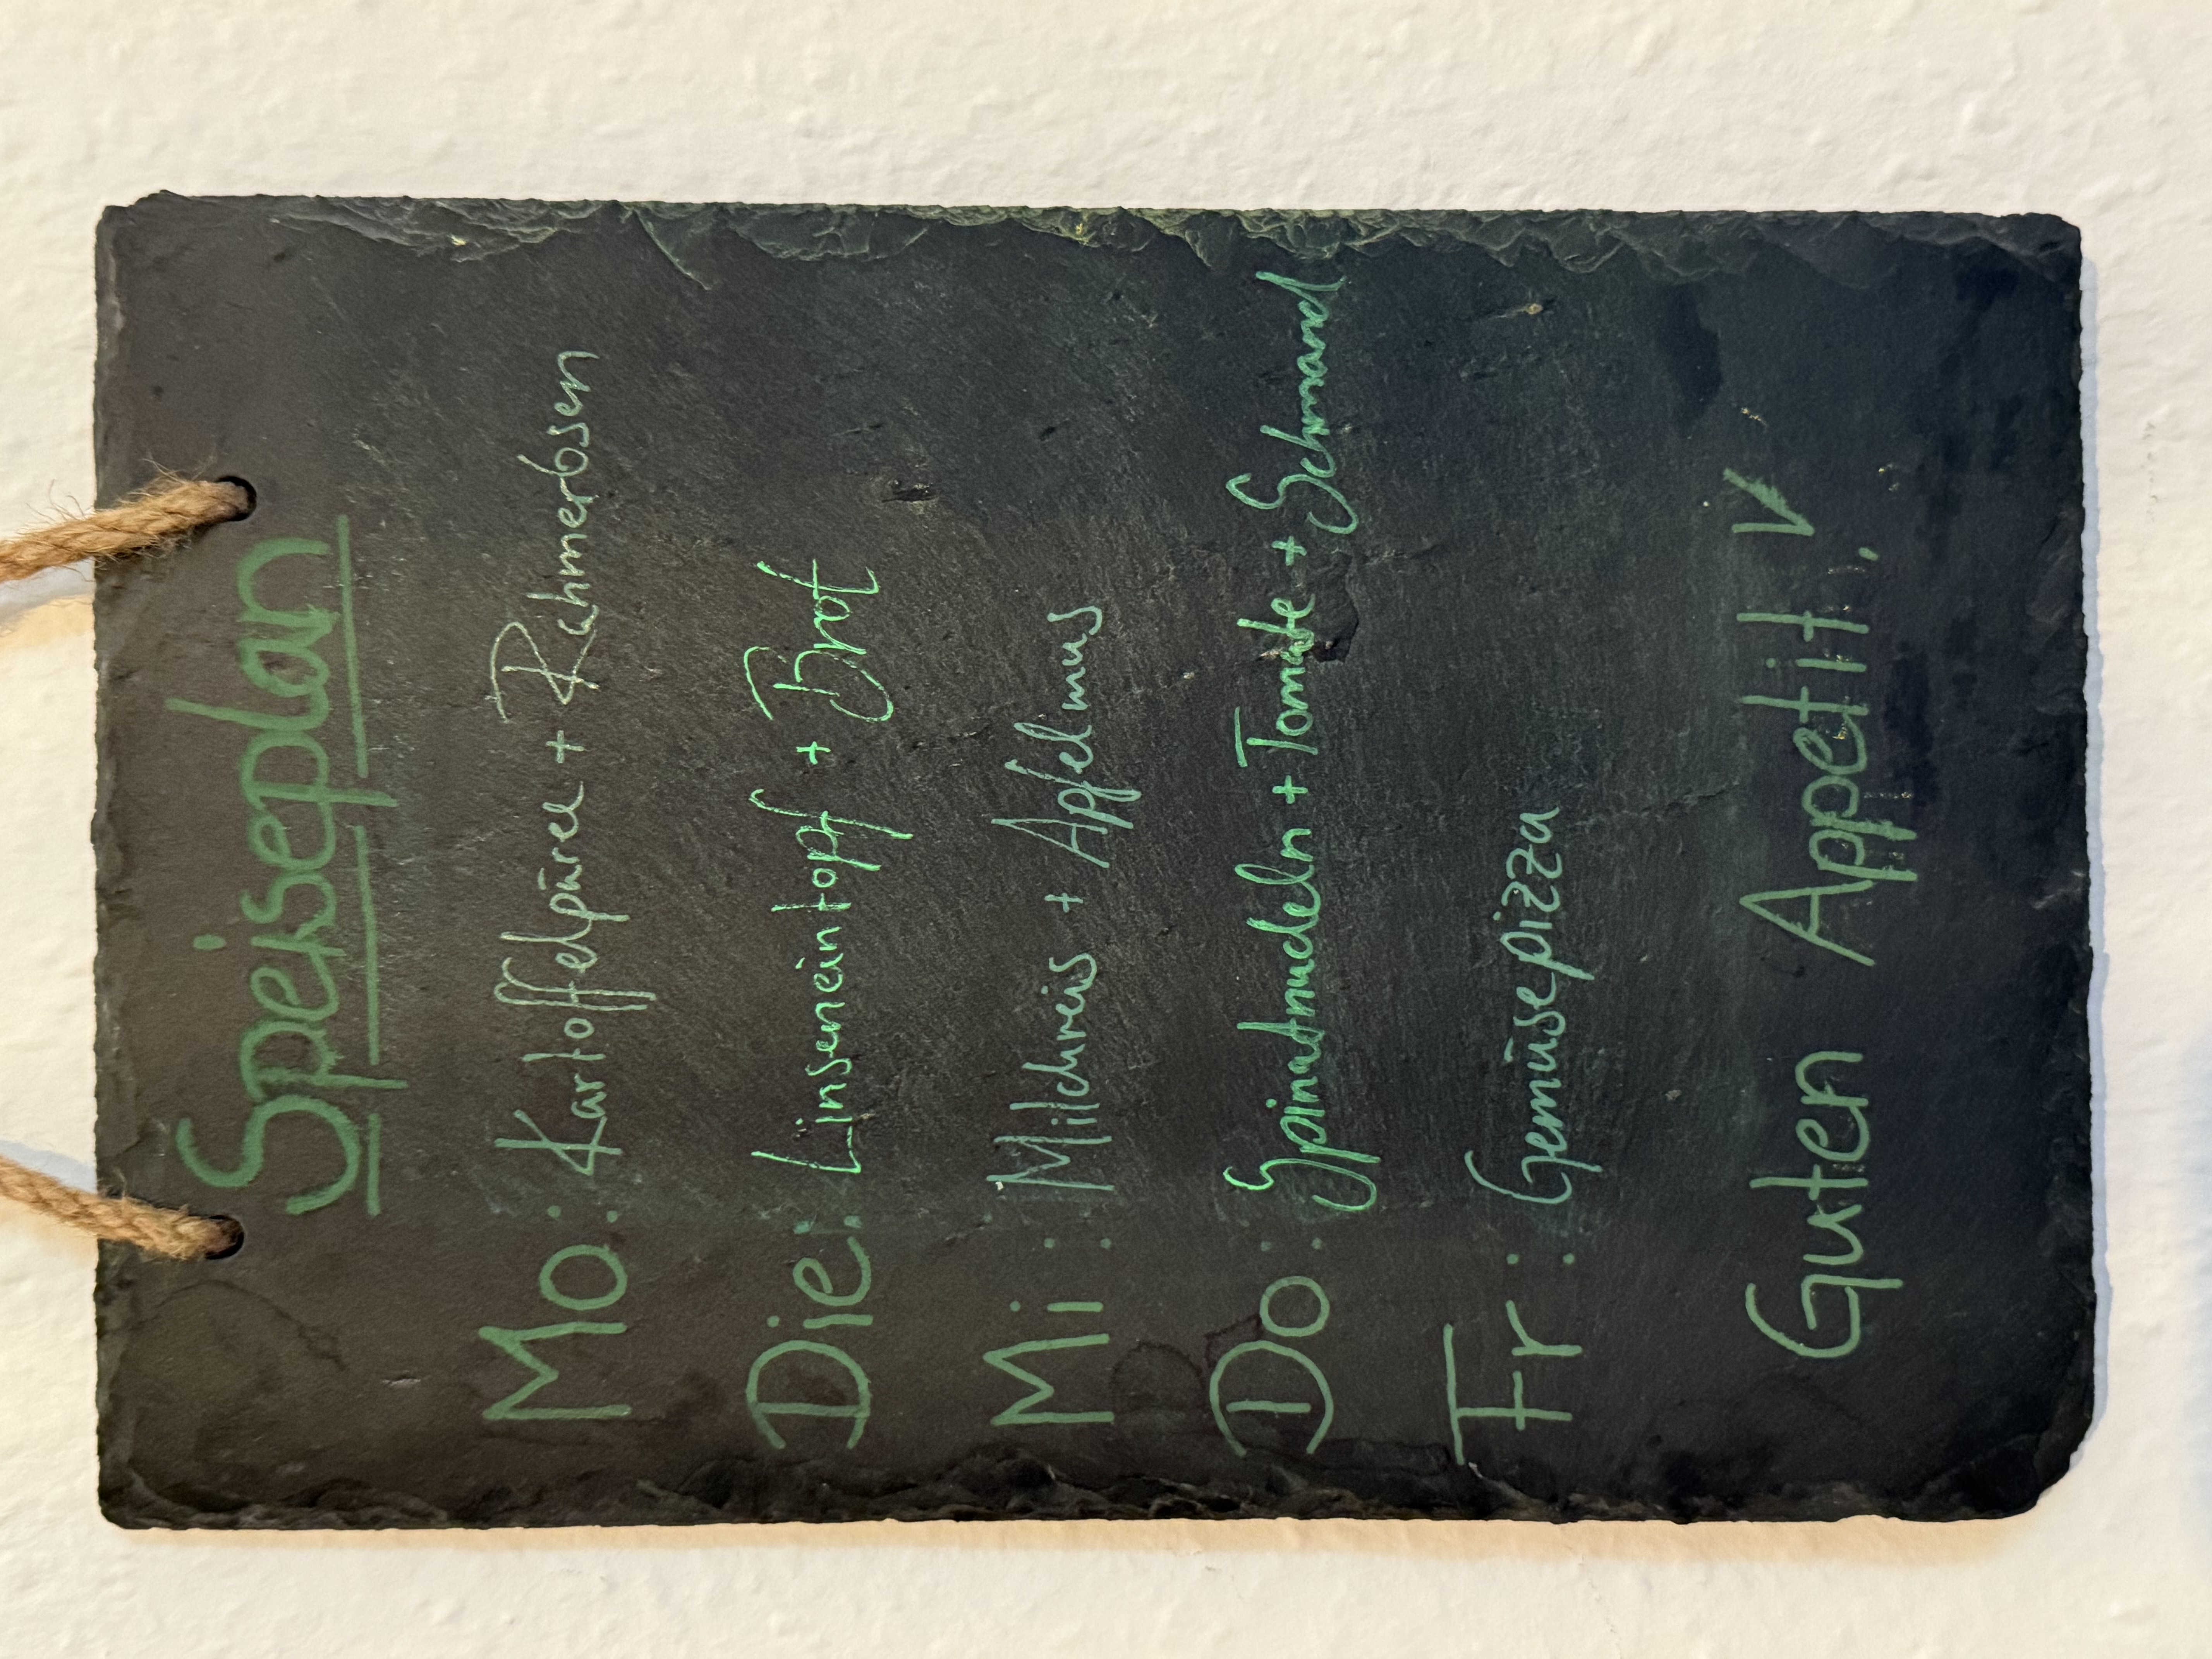 Speiseplan
Mo: Kartoffelpüree + Rahmerbsen
Die: Linseneintopf + Brot
Mi: Milchreis + Apfelmus
Do: Spinatnudeln + Tomate + Schmand
Fr: Gemüsepizza
Guten Appetit!